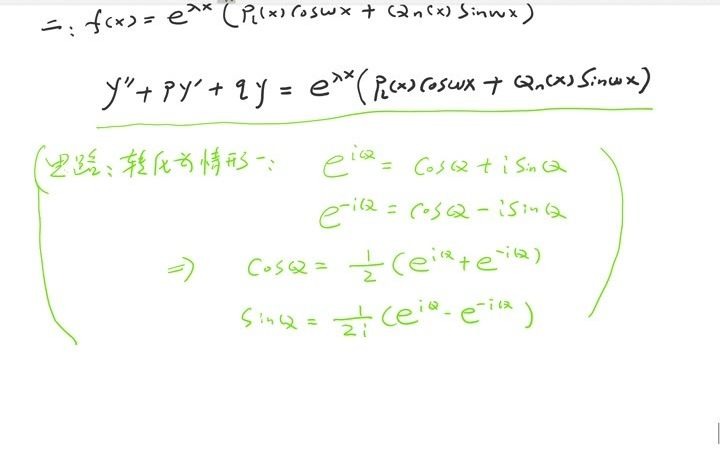 二: f(x) = e^λx (Pl(x) cosωx + Qn(x) sinωx)
y'' + py' + qy = e^λx (Pl(x) cosωx + Qn(x) sinωx)
(思路: 转化为情形一: e^iα = cosα + i sinα
e^-iα = cosα - i sinα
⇒ cosα = 1/2 (e^iα + e^-iα)
sinα = 1/2i (e^iα - e^-iα) )